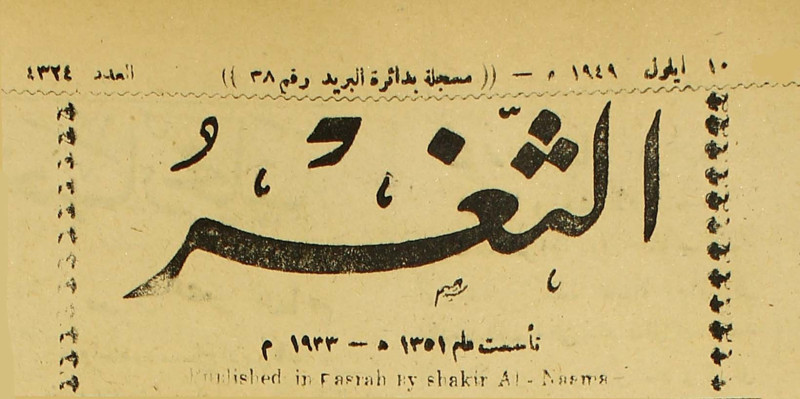 ١٠ ايلول ١٩٤٩ م — (( مسجلة بدائرة البريد رقم ٣٨ )) العدد ٤٣٢٤
الثَّغْرُ
تأسست عام ١٣٥١ ه — ١٩٣٣ م
Published in Basrah By shakir Al - Neema